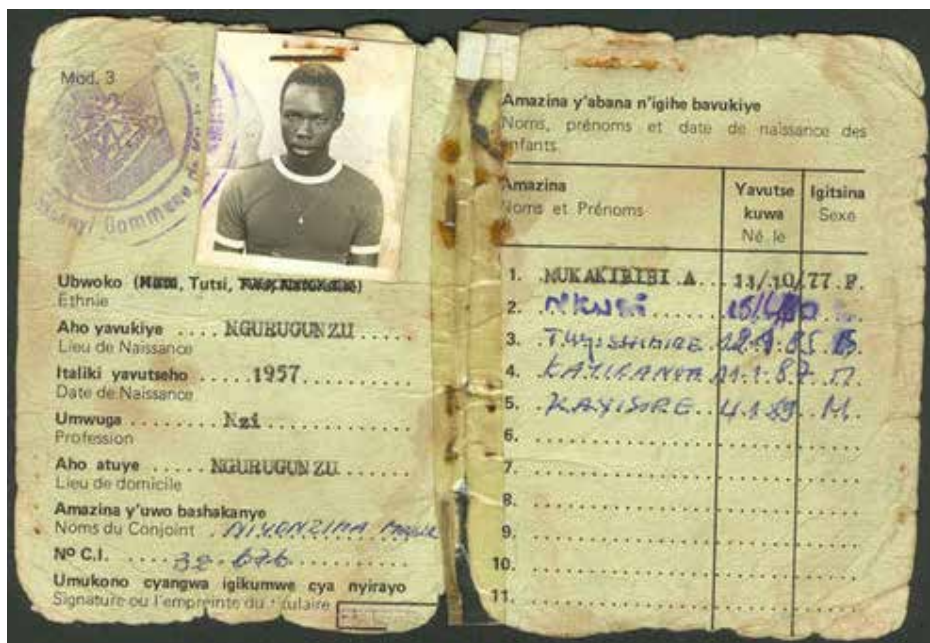 Mod. 3
Commune
Ubwoko (Hutu, Tutsi, Twa, Naturalisé)
Ethnie
Aho yavukiye .... NGURUGUNZU
Lieu de Naissance
Italiki yavutseho ..... 1957
Date de Naissance
Umwuga ........ Nzi
Profession
Aho atuye ..... NGURUGUNZU
Lieu de domicile
Amazina y'uwo bashakanye
Noms du Conjoint . NIYONZIMA
Nº C.I. .....
Umukono cyangwa igikumwe cya nyirayo
Signature ou l'empreinte du titulaire
Amazina y'abana n'igihe bavukiye
Noms, prénoms et date de naissance des
enfants.
Amazina Yavutse Igitsina
Noms et Prénoms kuwa Sexe
Né le
1. MUKAKIBIBI A. 11/10/77 F.
2. NKUSI
3. TUYISHIMIRE
4. KAYIRANGA M
5. KAYISIRE 4.1.89 M.
6.
7.
8.
9.
10.
11.